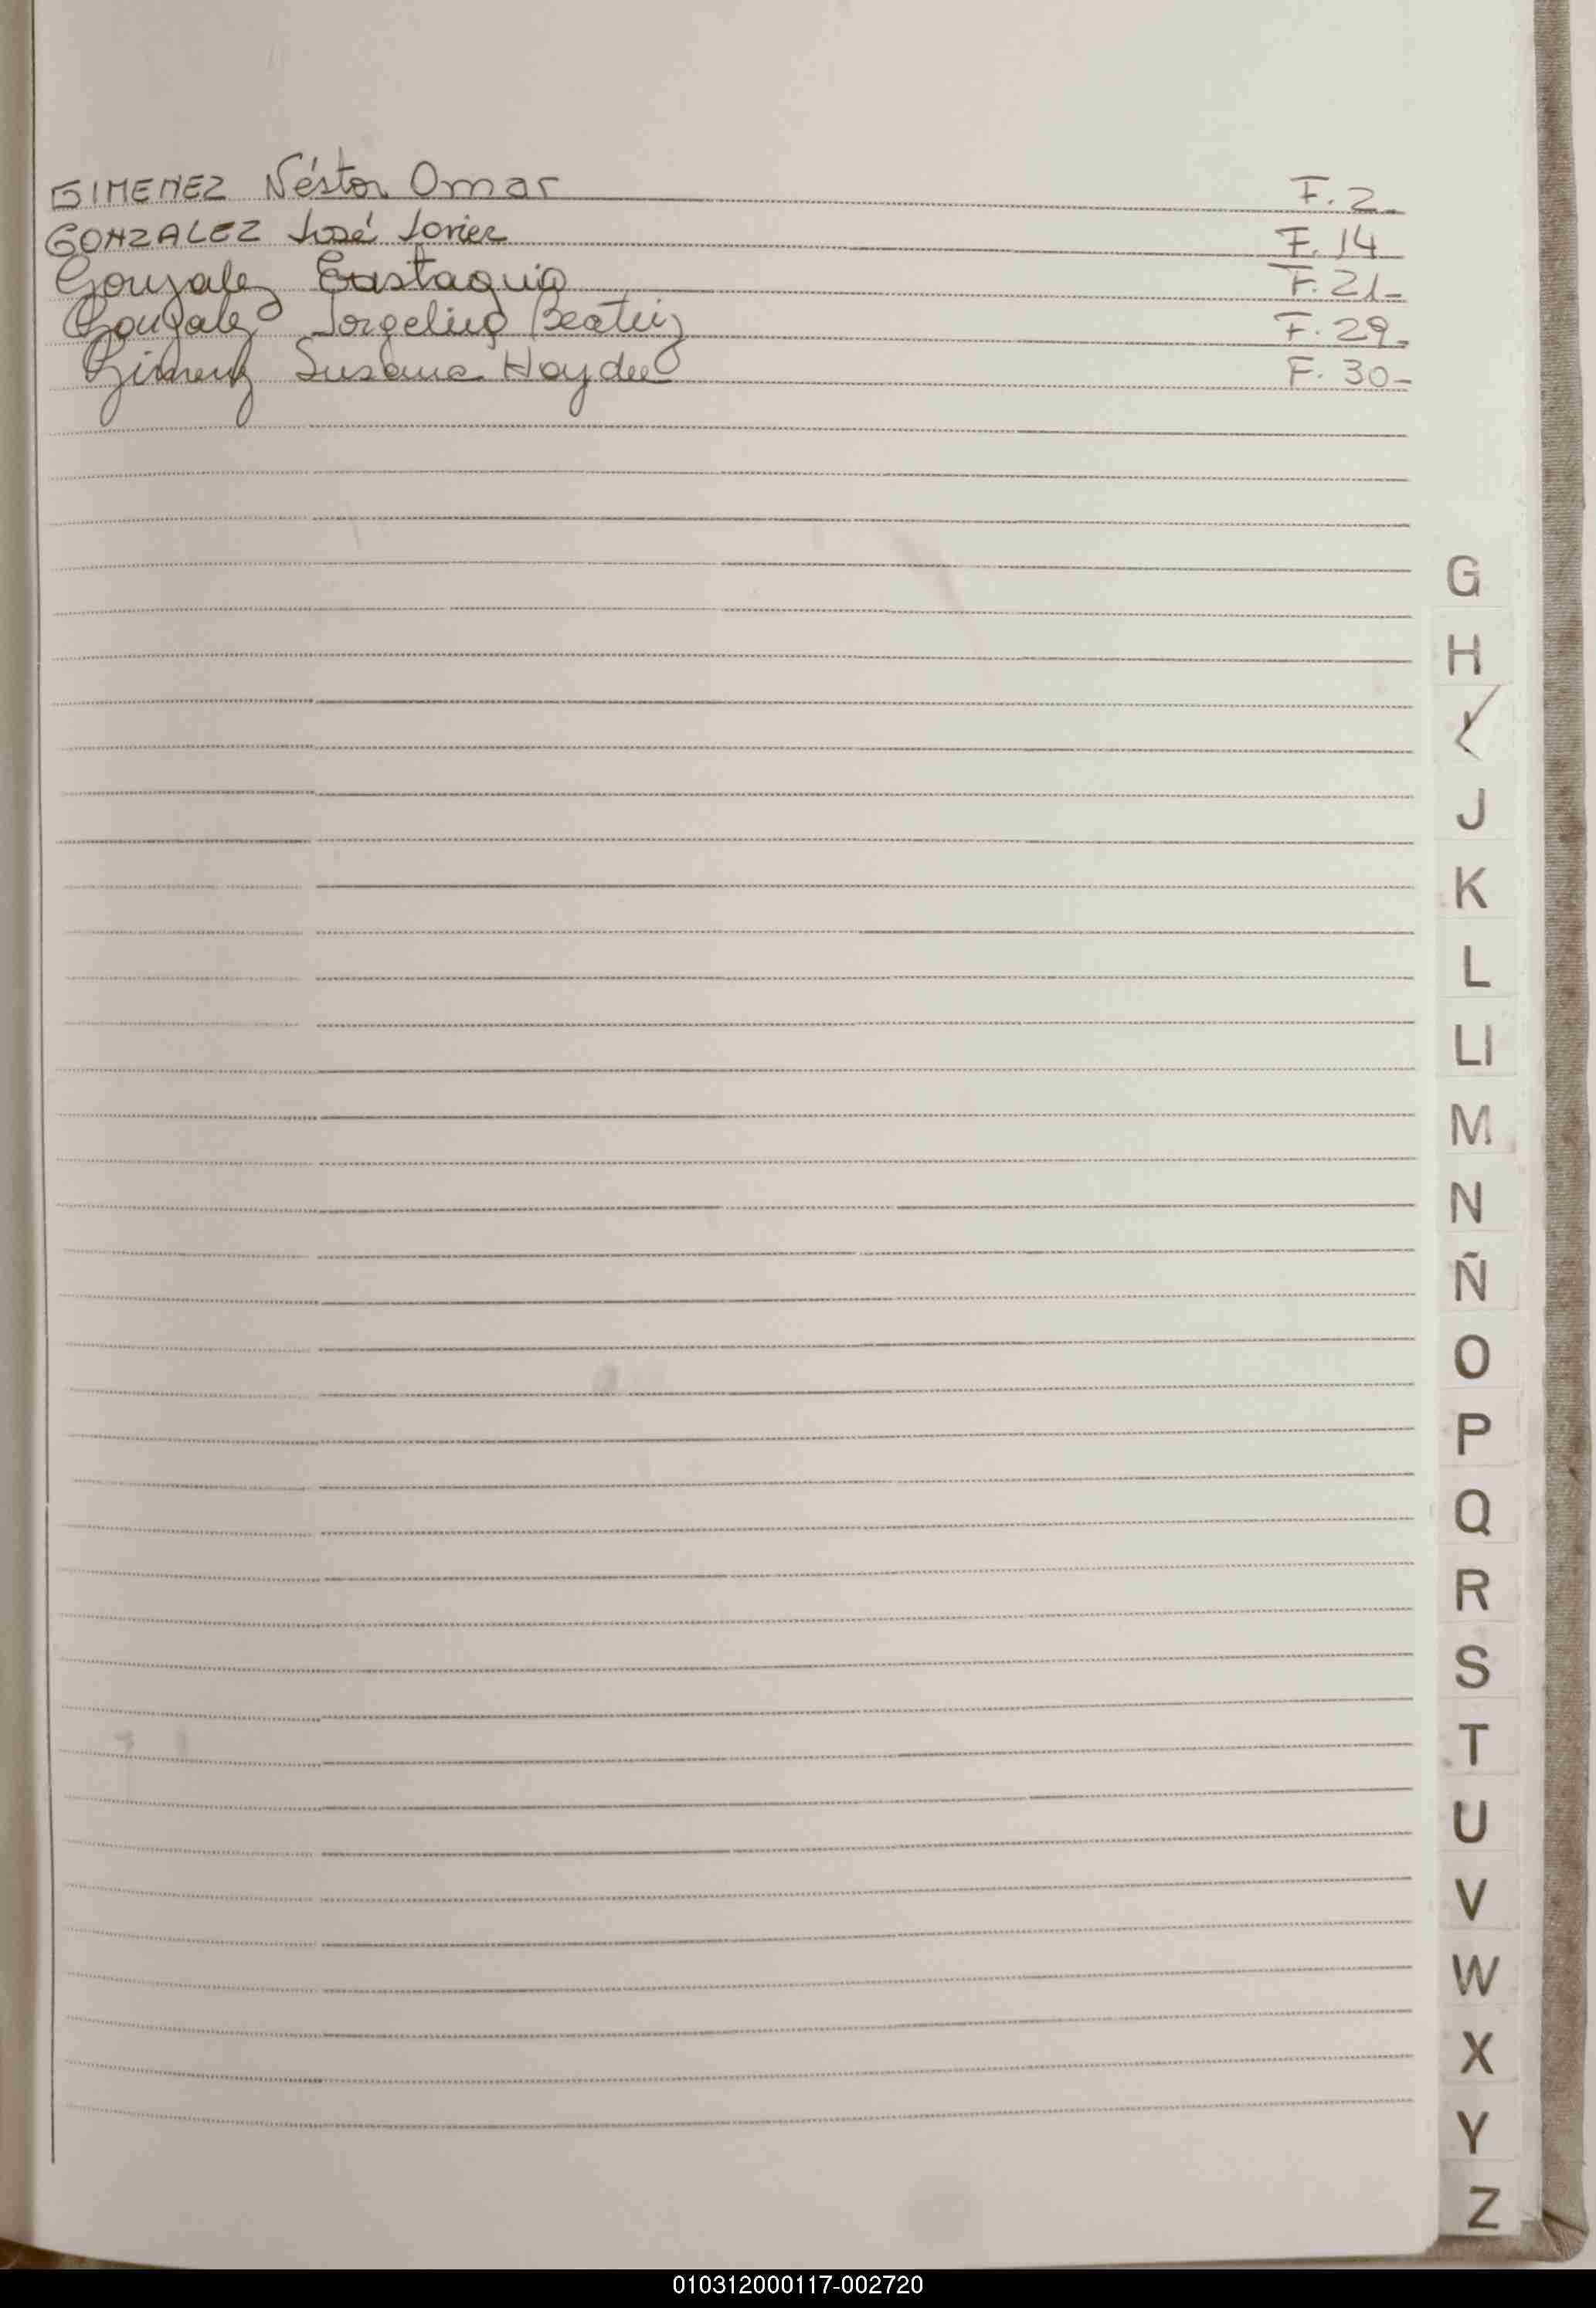 GIMENEZ Néstor Omar F. 2
GONZALEZ José Javier F. 14
Gonzalez Eustaquio F. 21
Gonzalez Jorgelina Beatriz F. 29
Gimenez Susana Haydee F. 30
G
H
J
K
L
Ll
M
N
Ñ
O
P
Q
R
S
T
U
V
W
X
Y
Z
010312000117-002720